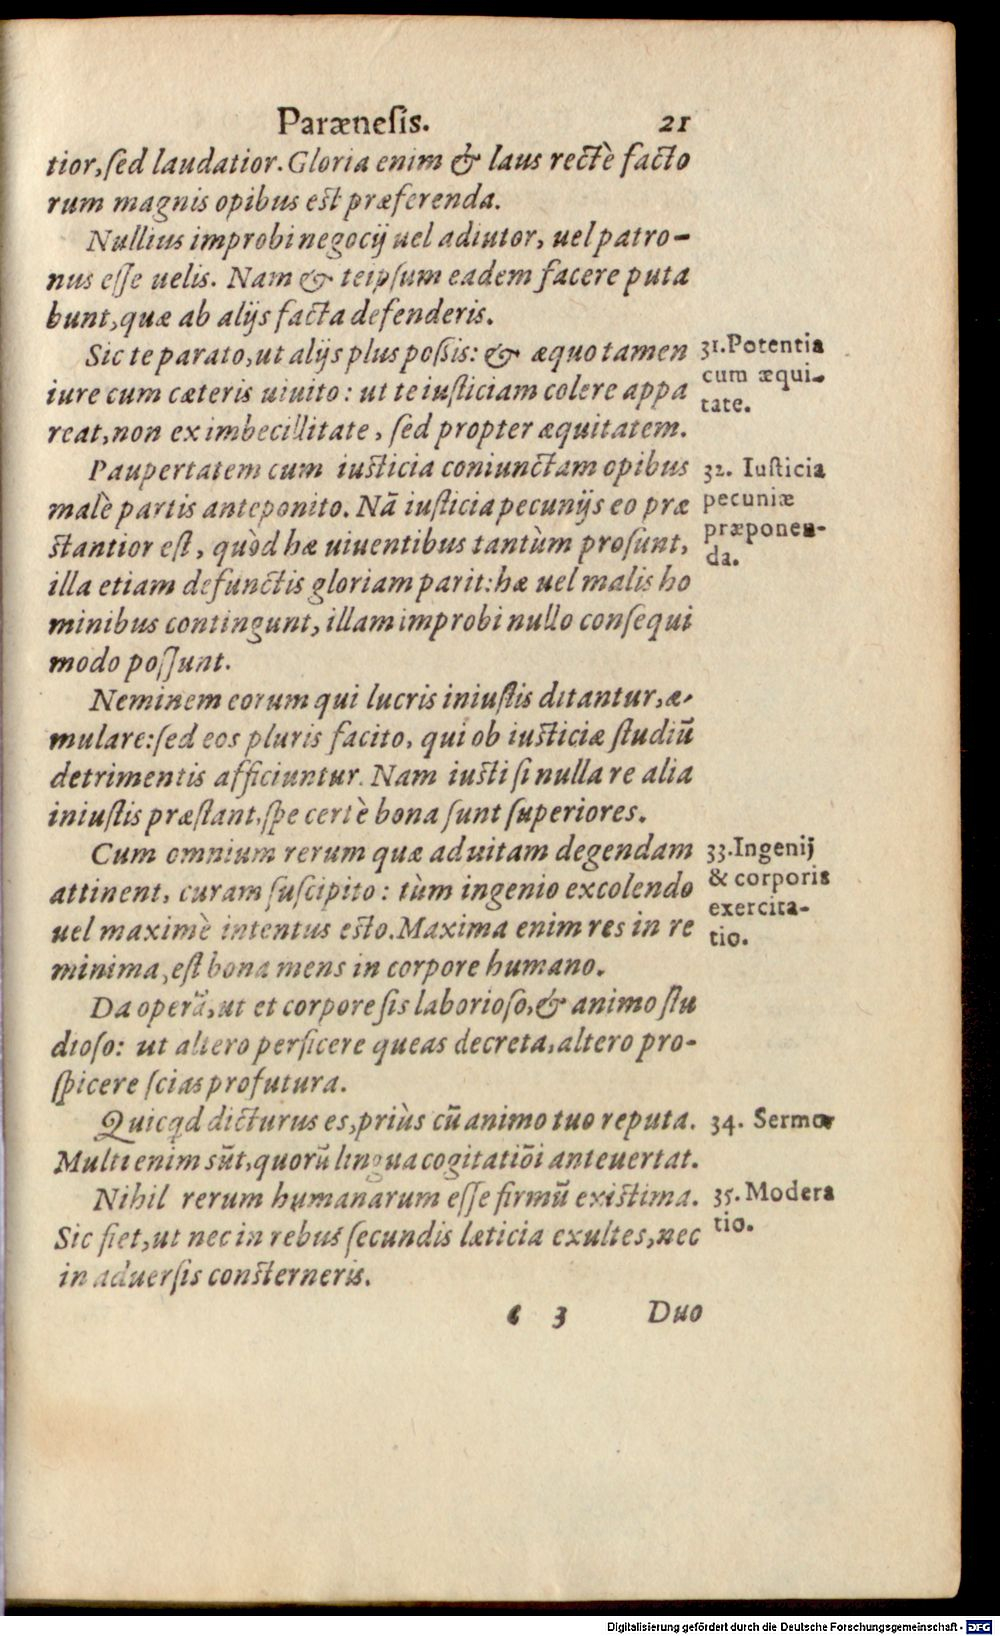 Parænesis. 21
tior, sed laudatior. Gloria enim & laus rectè facto
rum magnis opibus est præferenda.
Nullius improbi negocij uel adiutor, uel patro-
nus esse uelis. Nam & teipsum eadem facere puta
bunt, quæ ab alijs facta defenderis.
Sic te parato, ut alijs plus possis: & æquo tamen
iure cum cæteris uiuito: ut te iusticiam colere appa
reat, non ex imbecillitate, sed propter æquitatem.
31. Potentia
cum æqui-
tate.
Paupertatem cum iusticia coniunctam opibus
malè partis anteponito. Nā iusticia pecunijs eo præ
stantior est, quòd hæ uiuentibus tantùm prosunt,
illa etiam defunctis gloriam parit: hæ uel malis ho
minibus contingunt, illam improbi nullo consequi
modo possunt.
32. Iusticia
pecuniæ
præponen-
da.
Neminem eorum qui lucris iniustis ditantur, æ-
mulare: sed eos pluris facito, qui ob iusticiæ studiū
detrimentis afficiuntur. Nam iusti si nulla re alia
iniustis præstant, spe certè bona sunt superiores.
Cum omnium rerum quæ ad uitam degendam
attinent, curam suscipito: tùm ingenio excolendo
uel maximè intentus esto. Maxima enim res in re
minima, est bona mens in corpore humano.
33. Ingenij
& corporis
exercita-
tio.
Da operā, ut et corpore sis laborioso, & animo stu
dioso: ut altero perficere queas decreta, altero pro-
spicere scias profutura.
Quicqd dicturus es, priùs cū animo tuo reputa.
Multi enim sūt, quorū lingua cogitatiōi anteuertat.
34. Sermo
Nihil rerum humanarum esse firmū existima.
Sic fiet, ut nec in rebus secundis læticia exultes, nec
in aduersis consterneris.
35. Modera
tio.
c 3 Duo
Digitalisierung gefördert durch die Deutsche Forschungsgemeinschaft - DFG